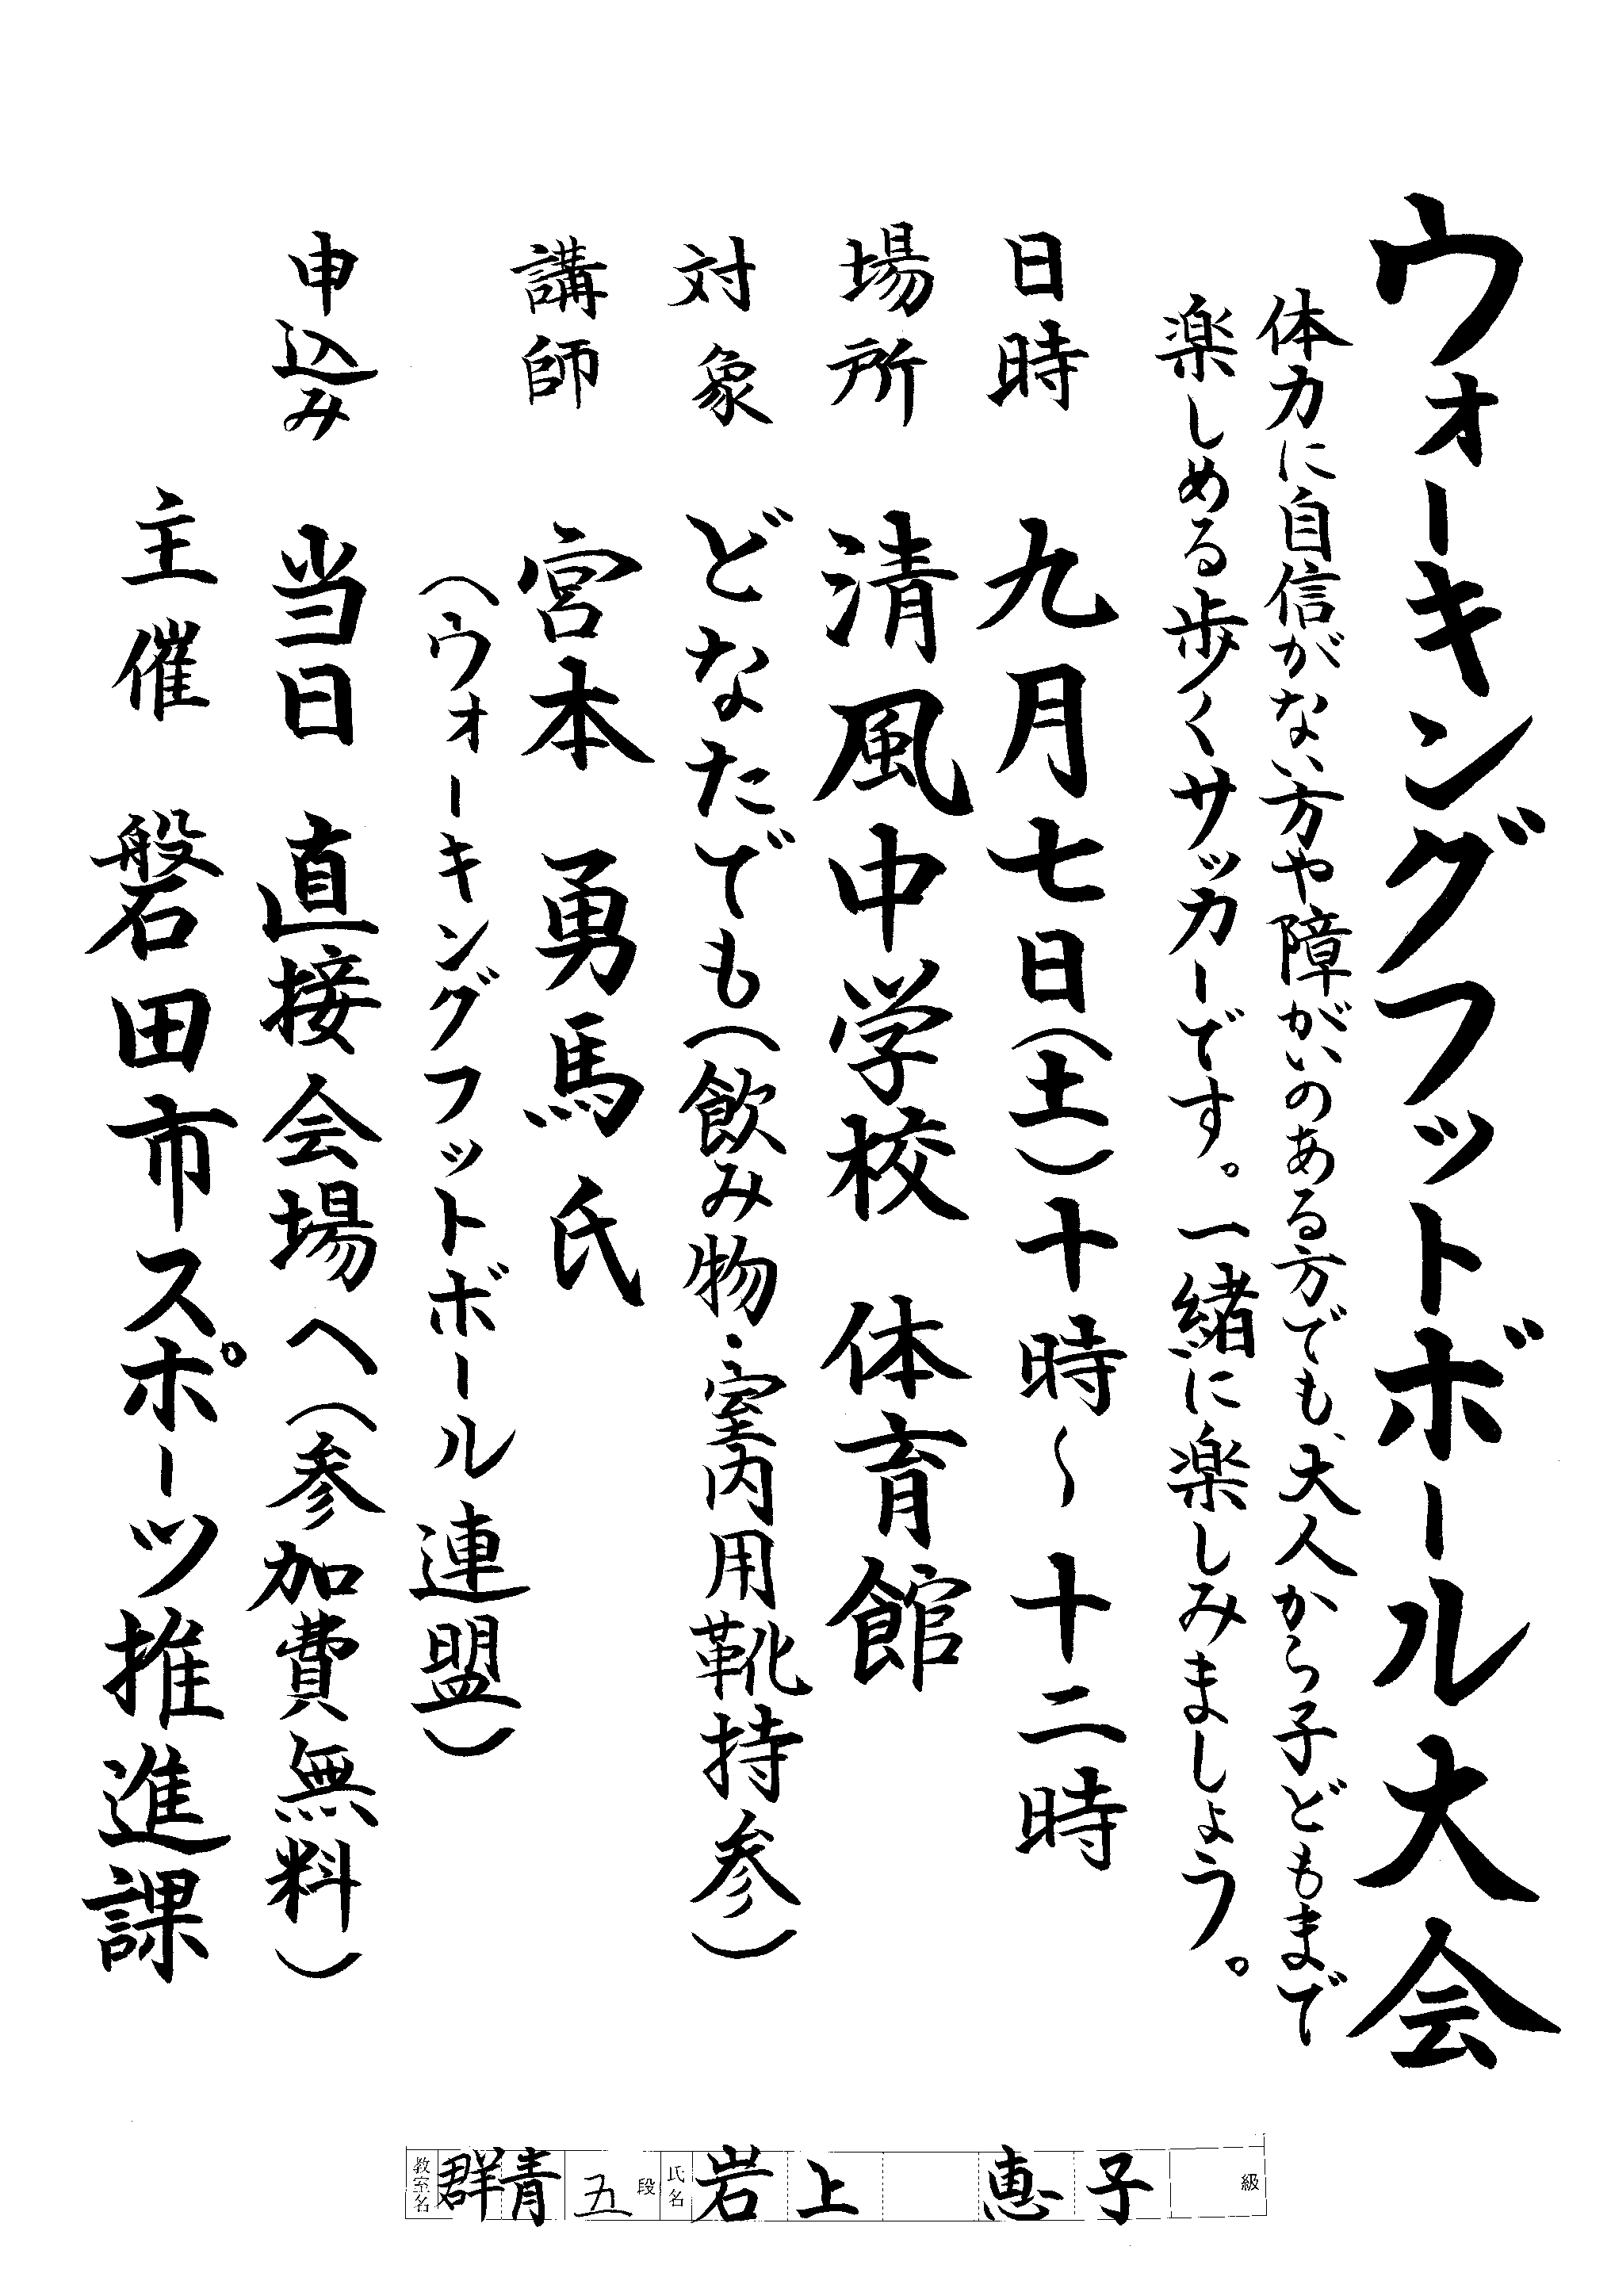 ウォーキングフットボール大会
体力に自信がない方や障がいのある方でも、大人から子どもまで
楽しめる歩くサッカーです。一緒に楽しみましょう。
日時　九月七日(土)十時〜十二時
場所　清風中学校　体育館
対象　どなたでも(飲み物・室内用靴持参)
講師　宮本　勇馬　氏
(ウォーキングフットボール連盟)
申込み　当日　直接会場へ(参加費無料)
主催　磐田市スポーツ推進課
教室名　群青　五段　氏名　岩上　恵子　級